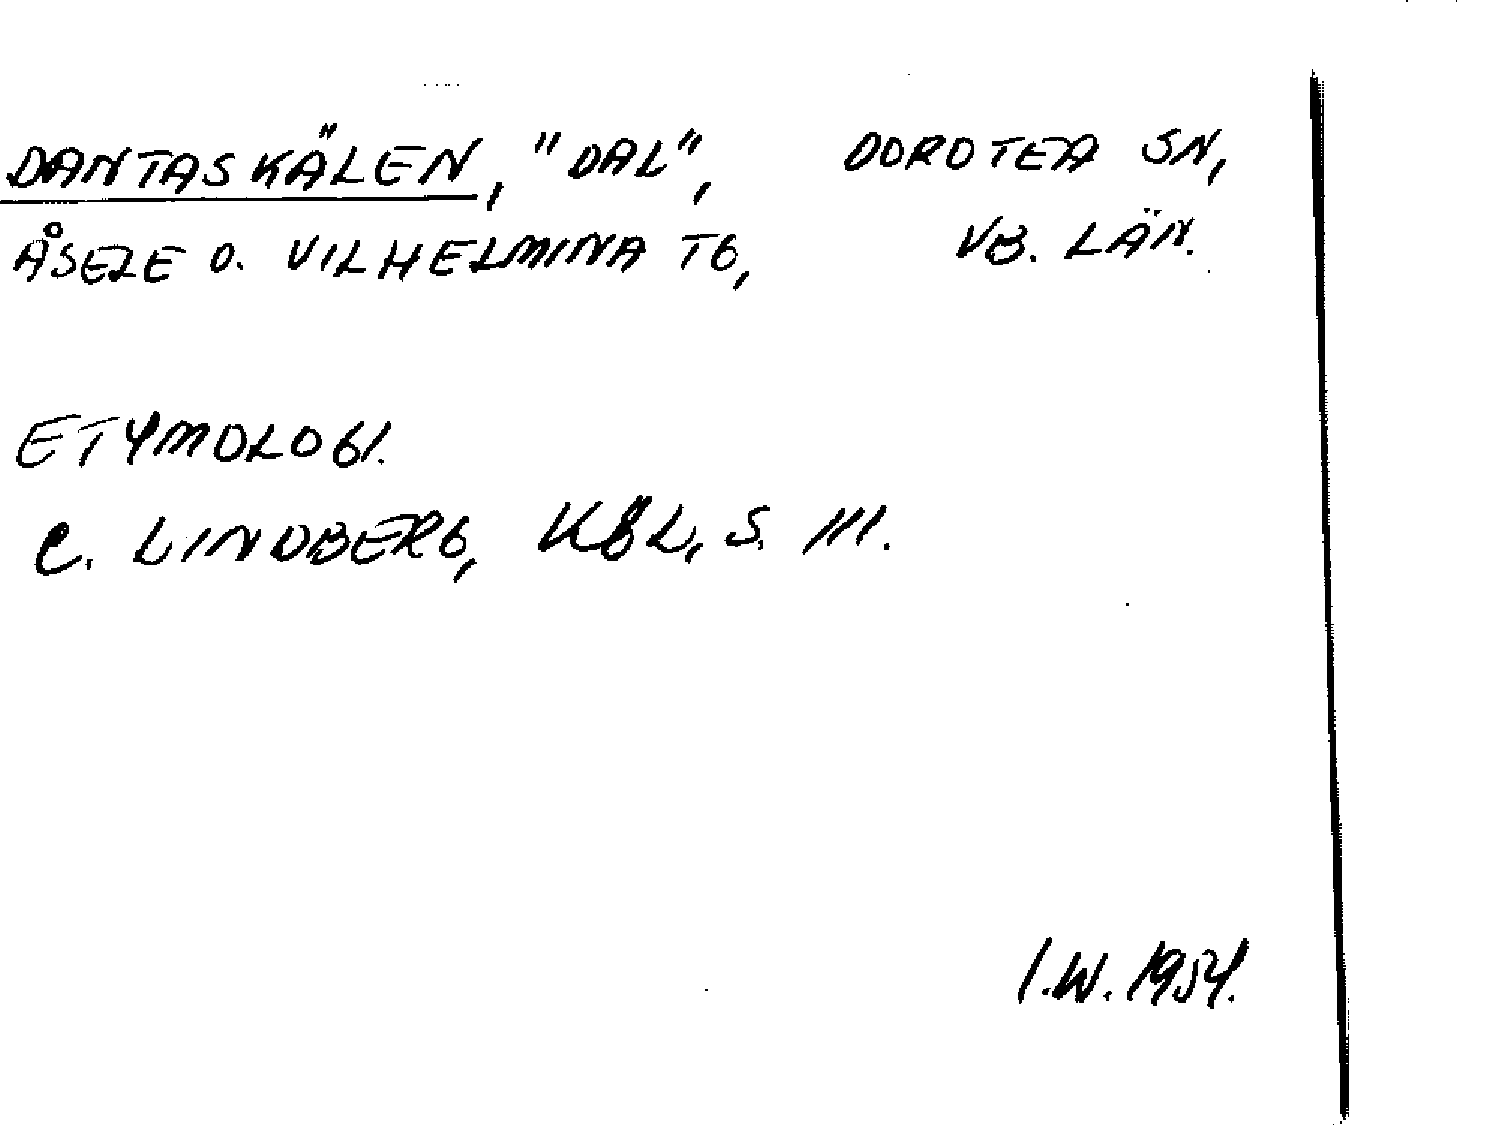 DANTASKÄLEN, "DAL", DOROTEA SN,
ÅSELE O. VILHELMINA TG, VB. LÄN.
ETYMOLOGI.
C. LINDBERG, KÖL, S. 111.
I.W. 1954.